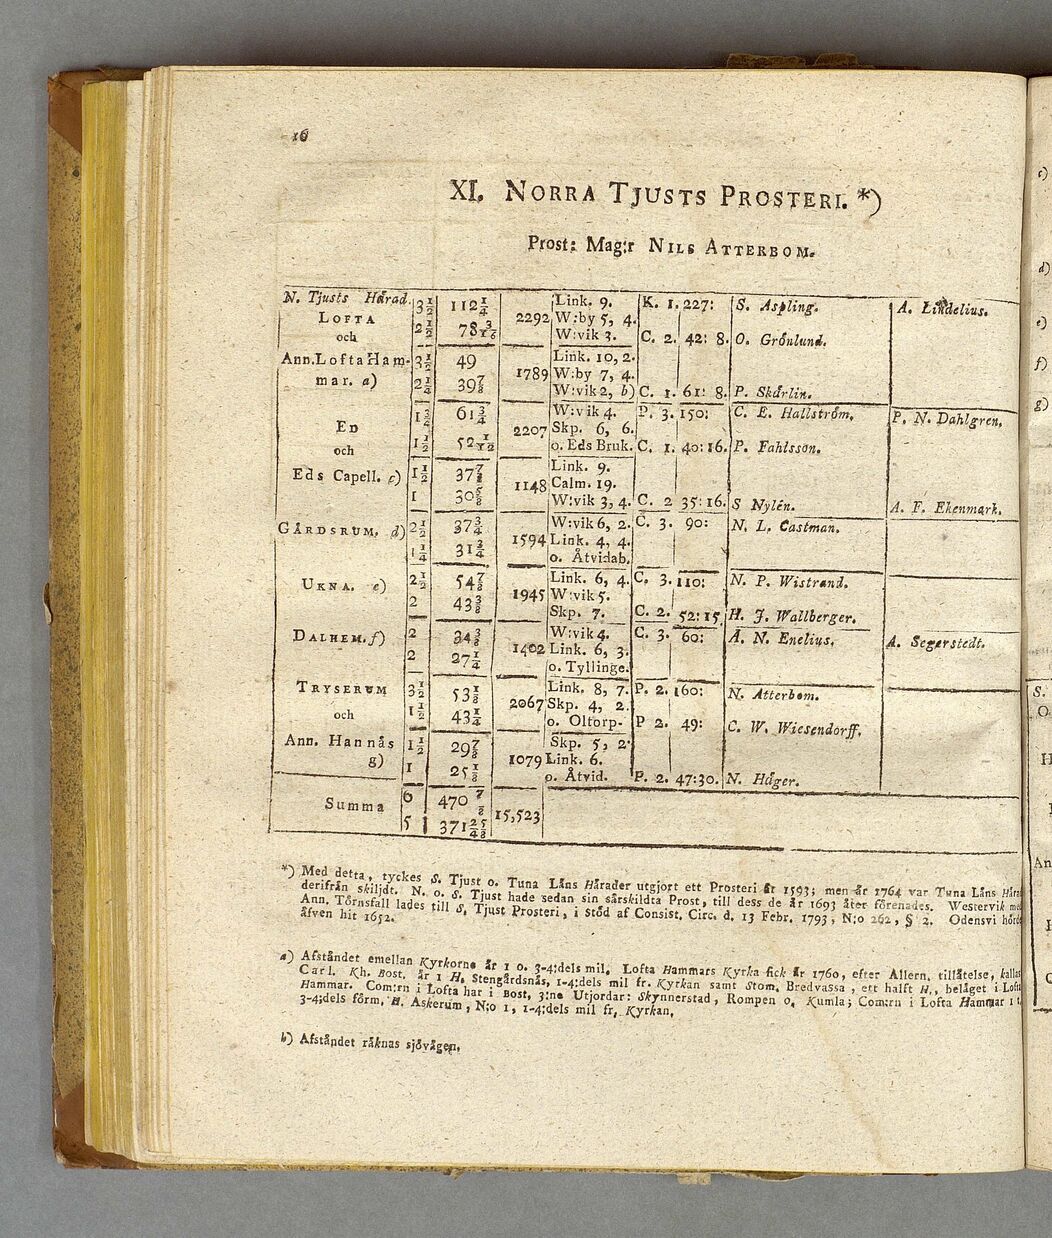 16
XI. NORRA TJUSTS PROSTERI. *)
Prost: Mag:r NILS ATTERBOM.
N. Tjusts Hårad. 3 1/2 112 1/4 Link. 9. K. 1. 227: S. Aspling. A. Lindelius.
LOFTA 2292 W:by 5, 4.
och 2 1/2 78 3/16 W:vik 3. C. 2. 42: 8. O. Grönlund.
Ann. Lofta Ham- 3 1/2 49 Link. 10, 2.
mar. a) 1789 W:by 7, 4.
2 1/4 39 7/8 W:vik 2, b) C. 1. 61: 8. P. Skårlin.
1 3/4 61 3/4 W:vik 4. P. 3. 150: C. E. Hallström. P. N. Dahlgren.
ED 2207 Skp. 6, 6.
och 1 1/2 52 1/12 o. Eds Bruk. C. 1. 40: 16. P. Fahlsson.
Eds Capell. c) 1 1/2 37 7/8 Link. 9.
1148 Calm. 19.
1 30 5/8 W:vik 3, 4. C. 2 35: 16. S Nylén. A. F. Ekenmark.
GÅRDSRUM. d) 2 1/2 37 3/4 W:vik 6, 2. C. 3. 90: N. L. Castman.
1594 Link. 4, 4.
1 1/4 31 3/4 o. Åtvidab.
UKNA. e) 2 1/2 54 7/8 Link. 6, 4. C. 3. 110: N. P. Wistrand.
1945 W:vik 5.
2 43 3/8 Skp. 7. C. 2. 52: 15. H. J. Wallberger.
DALHEM. f) 2 34 3/8 W:vik 4. C. 3. 60: Å. N. Enelius. A. Segerstedt.
1402 Link. 6, 3.
2 27 1/4 o. Tyllinge.
TRYSERUM 3 1/2 53 1/8 Link. 8, 7. P. 2. 160: N. Atterbom.
2067 Skp. 4, 2.
och 1 1/2 43 1/4 o. Oltorp- P 2. 49: C. W. Wiesendorff.
Ann. Hannås 1 1/2 29 7/8 Skp. 5, 2.
g) 1079 Link. 6.
1 25 1/8 o. Åtvid. P. 2. 47: 30. N. Håger.
Summa 6 470 7/8 15,523
5 371 25/48
*) Med detta, tyckes S. Tjust o. Tuna Låns Hårader utgjort ett Prosteri år 1593; men år 1764 var Tuna Låns Hårad
derifrån skiljdt. N. o. S. Tjust hade sedan sin sårskildta Prost, till dess de år 1693 åter förenades. Westervik med
Ann. Törnsfall lades till S. Tjust Prosteri, i stöd af Consist. Circ. d. 13 Febr. 1793, N:o 262, § 2. Odensvi hörde
åfven hit 1652.
a) Afståndet emellan Kyrkorne år 1 o. 3-4:dels mil. Lofta Hammars Kyrka fick år 1760, efter Allern. tillåtelse, kallas
Carl. Kh. Bost. år 1 H. Stengårdsnås, 1-4:dels mil fr. Kyrkan samt Stom. Bredvassa, ett halft H., belåget i Lofta
Hammar. Com:rn i Lofta har i Bost. 3:ne Utjordar: Skynnerstad, Rompen o. Kumla; Com:rn i Lofta Hammar 1 t.
3-4:dels förm. H. Askerum, N:o 1, 1-4:dels mil fr. Kyrkan.
b) Afståndet råknas sjövågen.